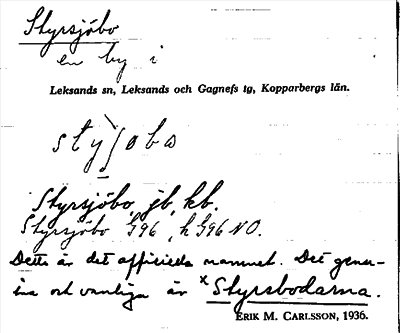 Styrsjöbo
en by i
Leksands sn, Leksands och Gagnefs tg, Kopparbergs län.
Styrsjöbo, jb, kb.
Styrsjöbo G96, h G96 NO.
Detta är det officiella namnet. Det genu-
ina och vanliga är × Styrsbodarna.
ERIK M. CARLSSON, 1936.